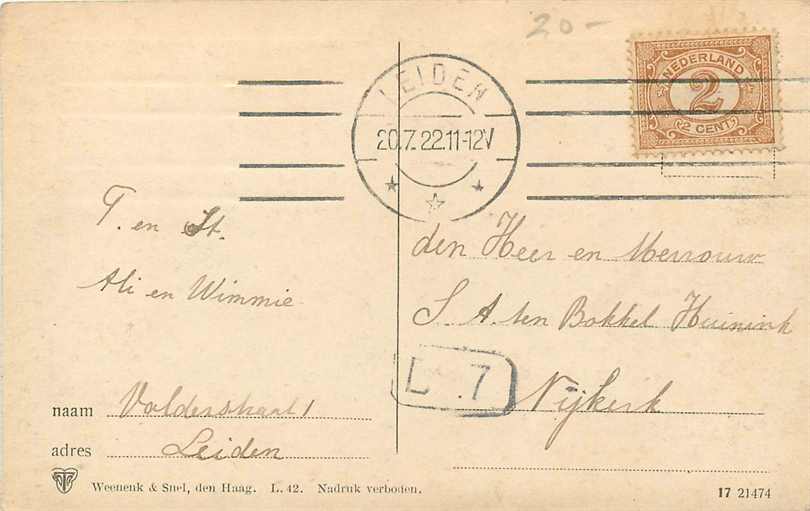 20-
NEDERLAND
2
2 CENT
LEIDEN
20.7.22.11-12V
T. en St.
Ali en Wimmie
den Heer en Mevrouw
S. A. ten Bokkel Huinink
Nijkerk
L 7
naam
adres
Leiden
Weenenk & Snel, den Haag. L. 42. Nadruk verboden.
17 21474